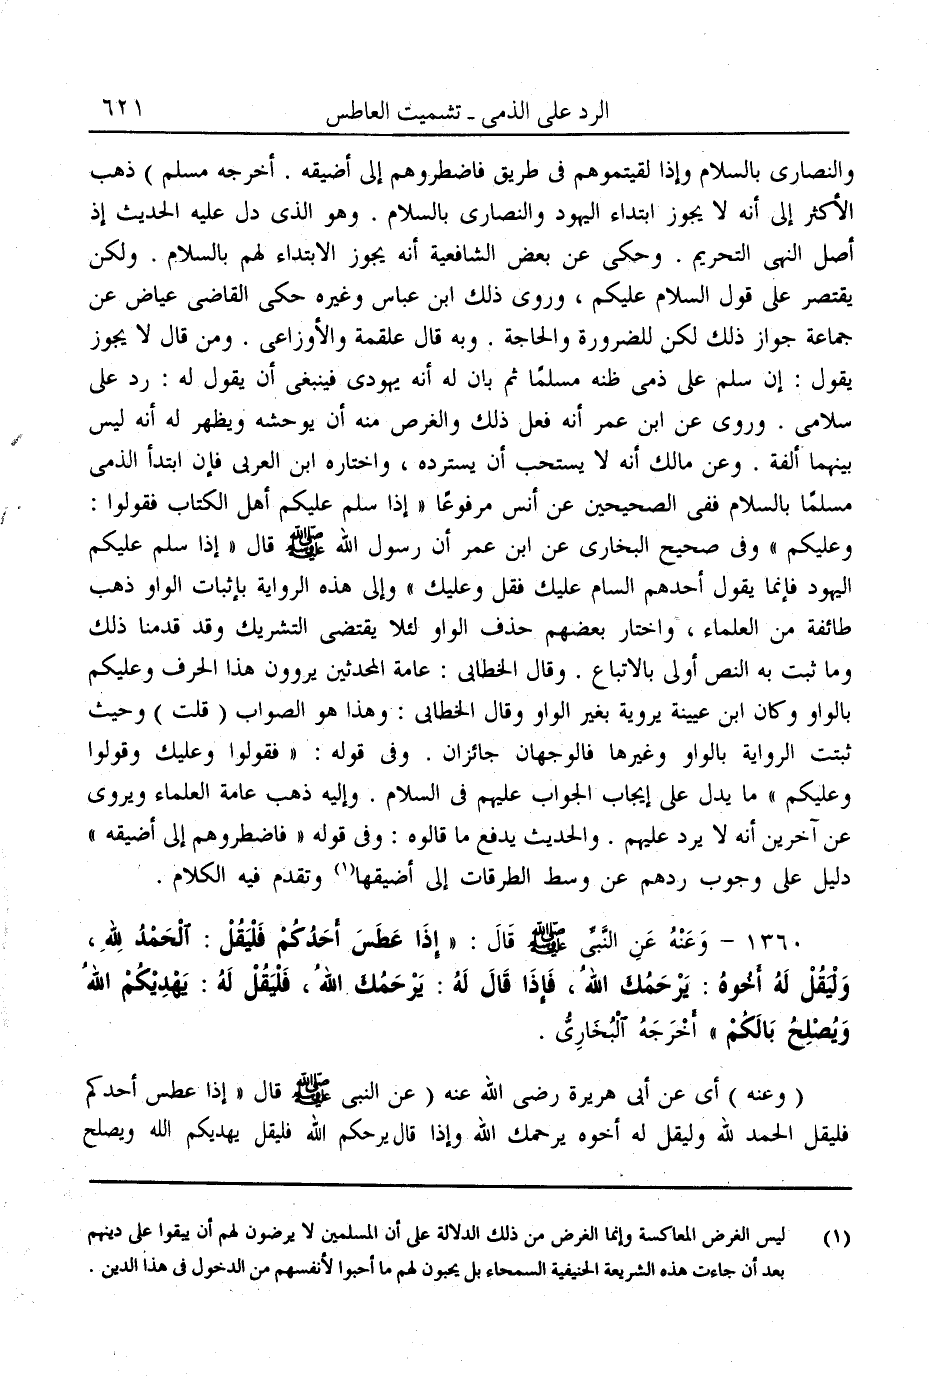 الرد على الذمى - تشميت العاطس ٦٢١
والنصارى بالسلام وإذا لقيتموهم فى طريق فاضطروهم إلى أضيقه . أخرجه مسلم ) ذهب
الأكثر إلى أنه لا يجوز ابتداء اليهود والنصارى بالسلام . وهو الذى دل عليه الحديث إذ
أصل النهى التحريم . وحكى عن بعض الشافعية أنه يجوز الابتداء لهم بالسلام . ولكن
يقتصر على قول السلام عليكم ، وروى ذلك ابن عباس وغيره حكى القاضى عياض عن
جماعة جواز ذلك لكن للضرورة والحاجة . وبه قال علقمة والأوزاعى . ومن قال لا يجوز
يقول : إن سلم على ذمى ظنه مسلمًا ثم بان له أنه يهودى فينبغى أن يقول له : رد على
سلامى . وروى عن ابن عمر أنه فعل ذلك والغرص منه أن يوحشه ويظهر له أنه ليس
بينهما ألفة . وعن مالك أنه لا يستحب أن يسترده ، واختاره ابن العربى فإن ابتدأ الذمى
مسلمًا بالسلام ففى الصحيحين عن أنس مرفوعًا « إذا سلم عليكم أهل الكتاب فقولوا :
وعليكم » وفى صحيح البخارى عن ابن عمر أن رسول الله ﷺ قال « إذا سلم عليكم
اليهود فإنما يقول أحدهم السام عليك فقل وعليك » وإلى هذه الرواية بإثبات الواو ذهب
طائفة من العلماء ، واختار بعضهم حذف الواو لئلا يقتضى التشريك وقد قدمنا ذلك
وما ثبت به النص أولى بالاتباع . وقال الخطابى : عامة المحدثين يروون هذا الحرف وعليكم
بالواو وكان ابن عيينة يروية بغير الواو وقال الخطابى : وهذا هو الصواب ( قلت ) وحيث
ثبتت الرواية بالواو وغيرها فالوجهان جائزان . وفى قوله : « فقولوا وعليك وقولوا
وعليكم » ما يدل على إيجاب الجواب عليهم فى السلام . وإليه ذهب عامة العلماء ويروى
عن آخرين أنه لا يرد عليهم . والحديث يدفع ما قالوه : وفى قوله « فاضطروهم إلى أضيقه »
دليل على وجوب ردهم عن وسط الطرقات إلى أضيقها(١) وتقدم فيه الكلام .
١٣٦٠ - وَعَنْهُ عَنِ النَّبِىِّ ﷺ قَالَ : « إِذَا عَطَسَ أَحَدُكُمْ فَلْيَقُلْ : ٱلْحَمْدُ لِلهِ ،
وَلْيَقُلْ لَهُ أَخُوهُ : يَرْحَمُكَ اللهُ ، فَإِذَا قَالَ لَهُ : يَرْحَمُكَ اللهُ ، فَلْيَقُلْ لَهُ : يَهْدِيكُمُ اللهُ
وَيُصْلِحُ بَالَكُمْ » أَخْرَجَهُ ٱلْبُخَارِىُّ .
( وعنه ) أى عن أبى هريرة رضى الله عنه ( عن النبى ﷺ قال « إذا عطس أحدكم
فليقل الحمد لله وليقل له أخوه يرحمك الله وإذا قال يرحكم الله فليقل يهديكم الله ويصلح
(١) ليس الغرض المعاكسة وإنما الغرض من ذلك الدلالة على أن المسلمين لا يرضون لهم أن يبقوا على دينهم
بعد أن جاءت هذه الشريعة الحنيفية السمحاء بل يحبون لهم ما أحبوا لأنفسهم من الدخول فى هذا الدين .